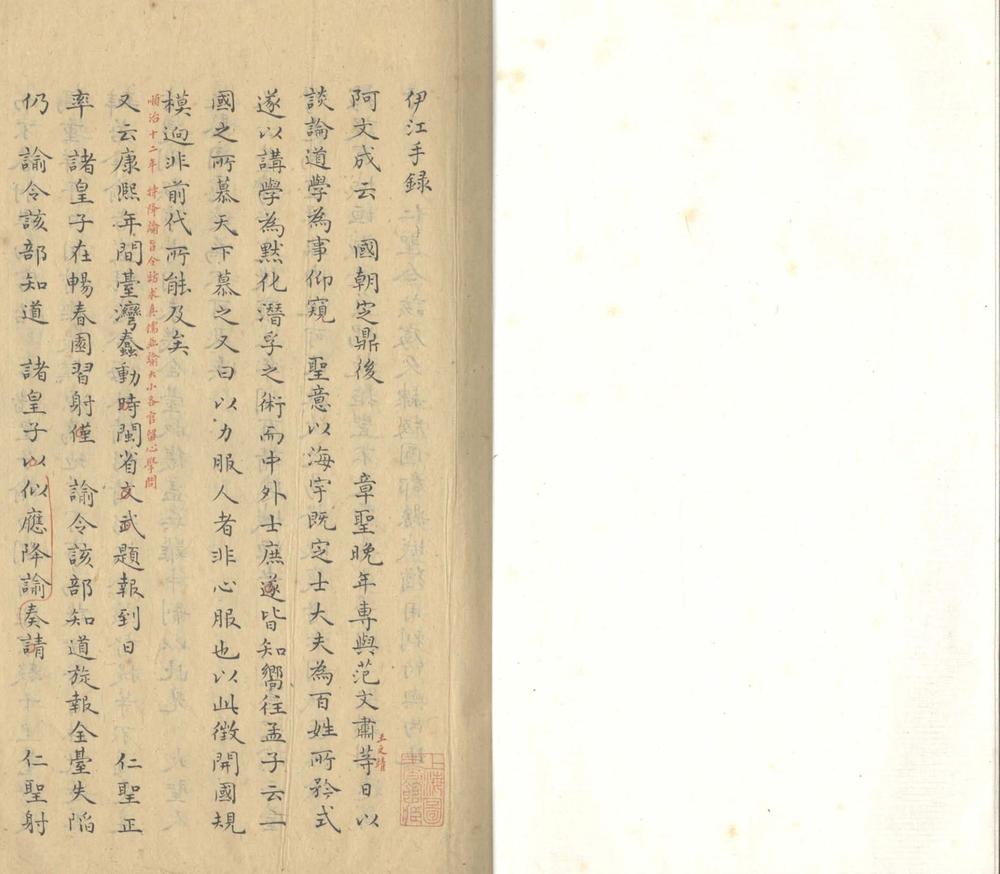 伊江手録
阿文成云　國朝定鼎後　章聖晚年專與范文肅等日以
王文靖
談論道學為事仰窺　聖意以海宇既定士大夫為百姓所矜式
遂以講學為默化潛孚之術而中外士庶遂皆知嚮往孟子云一
國之所慕天下慕之又曰以力服人者非心服也以此徵開國規
模迥非前代所能及矣
順治十二年　降諭旨令訪求真儒並諭大小各官留心學問
又云康熙年間臺灣蠢動時閩省文武題報到日　仁聖正
率　諸皇子在暢春園習射僅　諭令該部知道旋報全臺失陷
仍　諭令該部知道　諸皇子以似應降諭奏請　仁聖射
上海圖書館藏